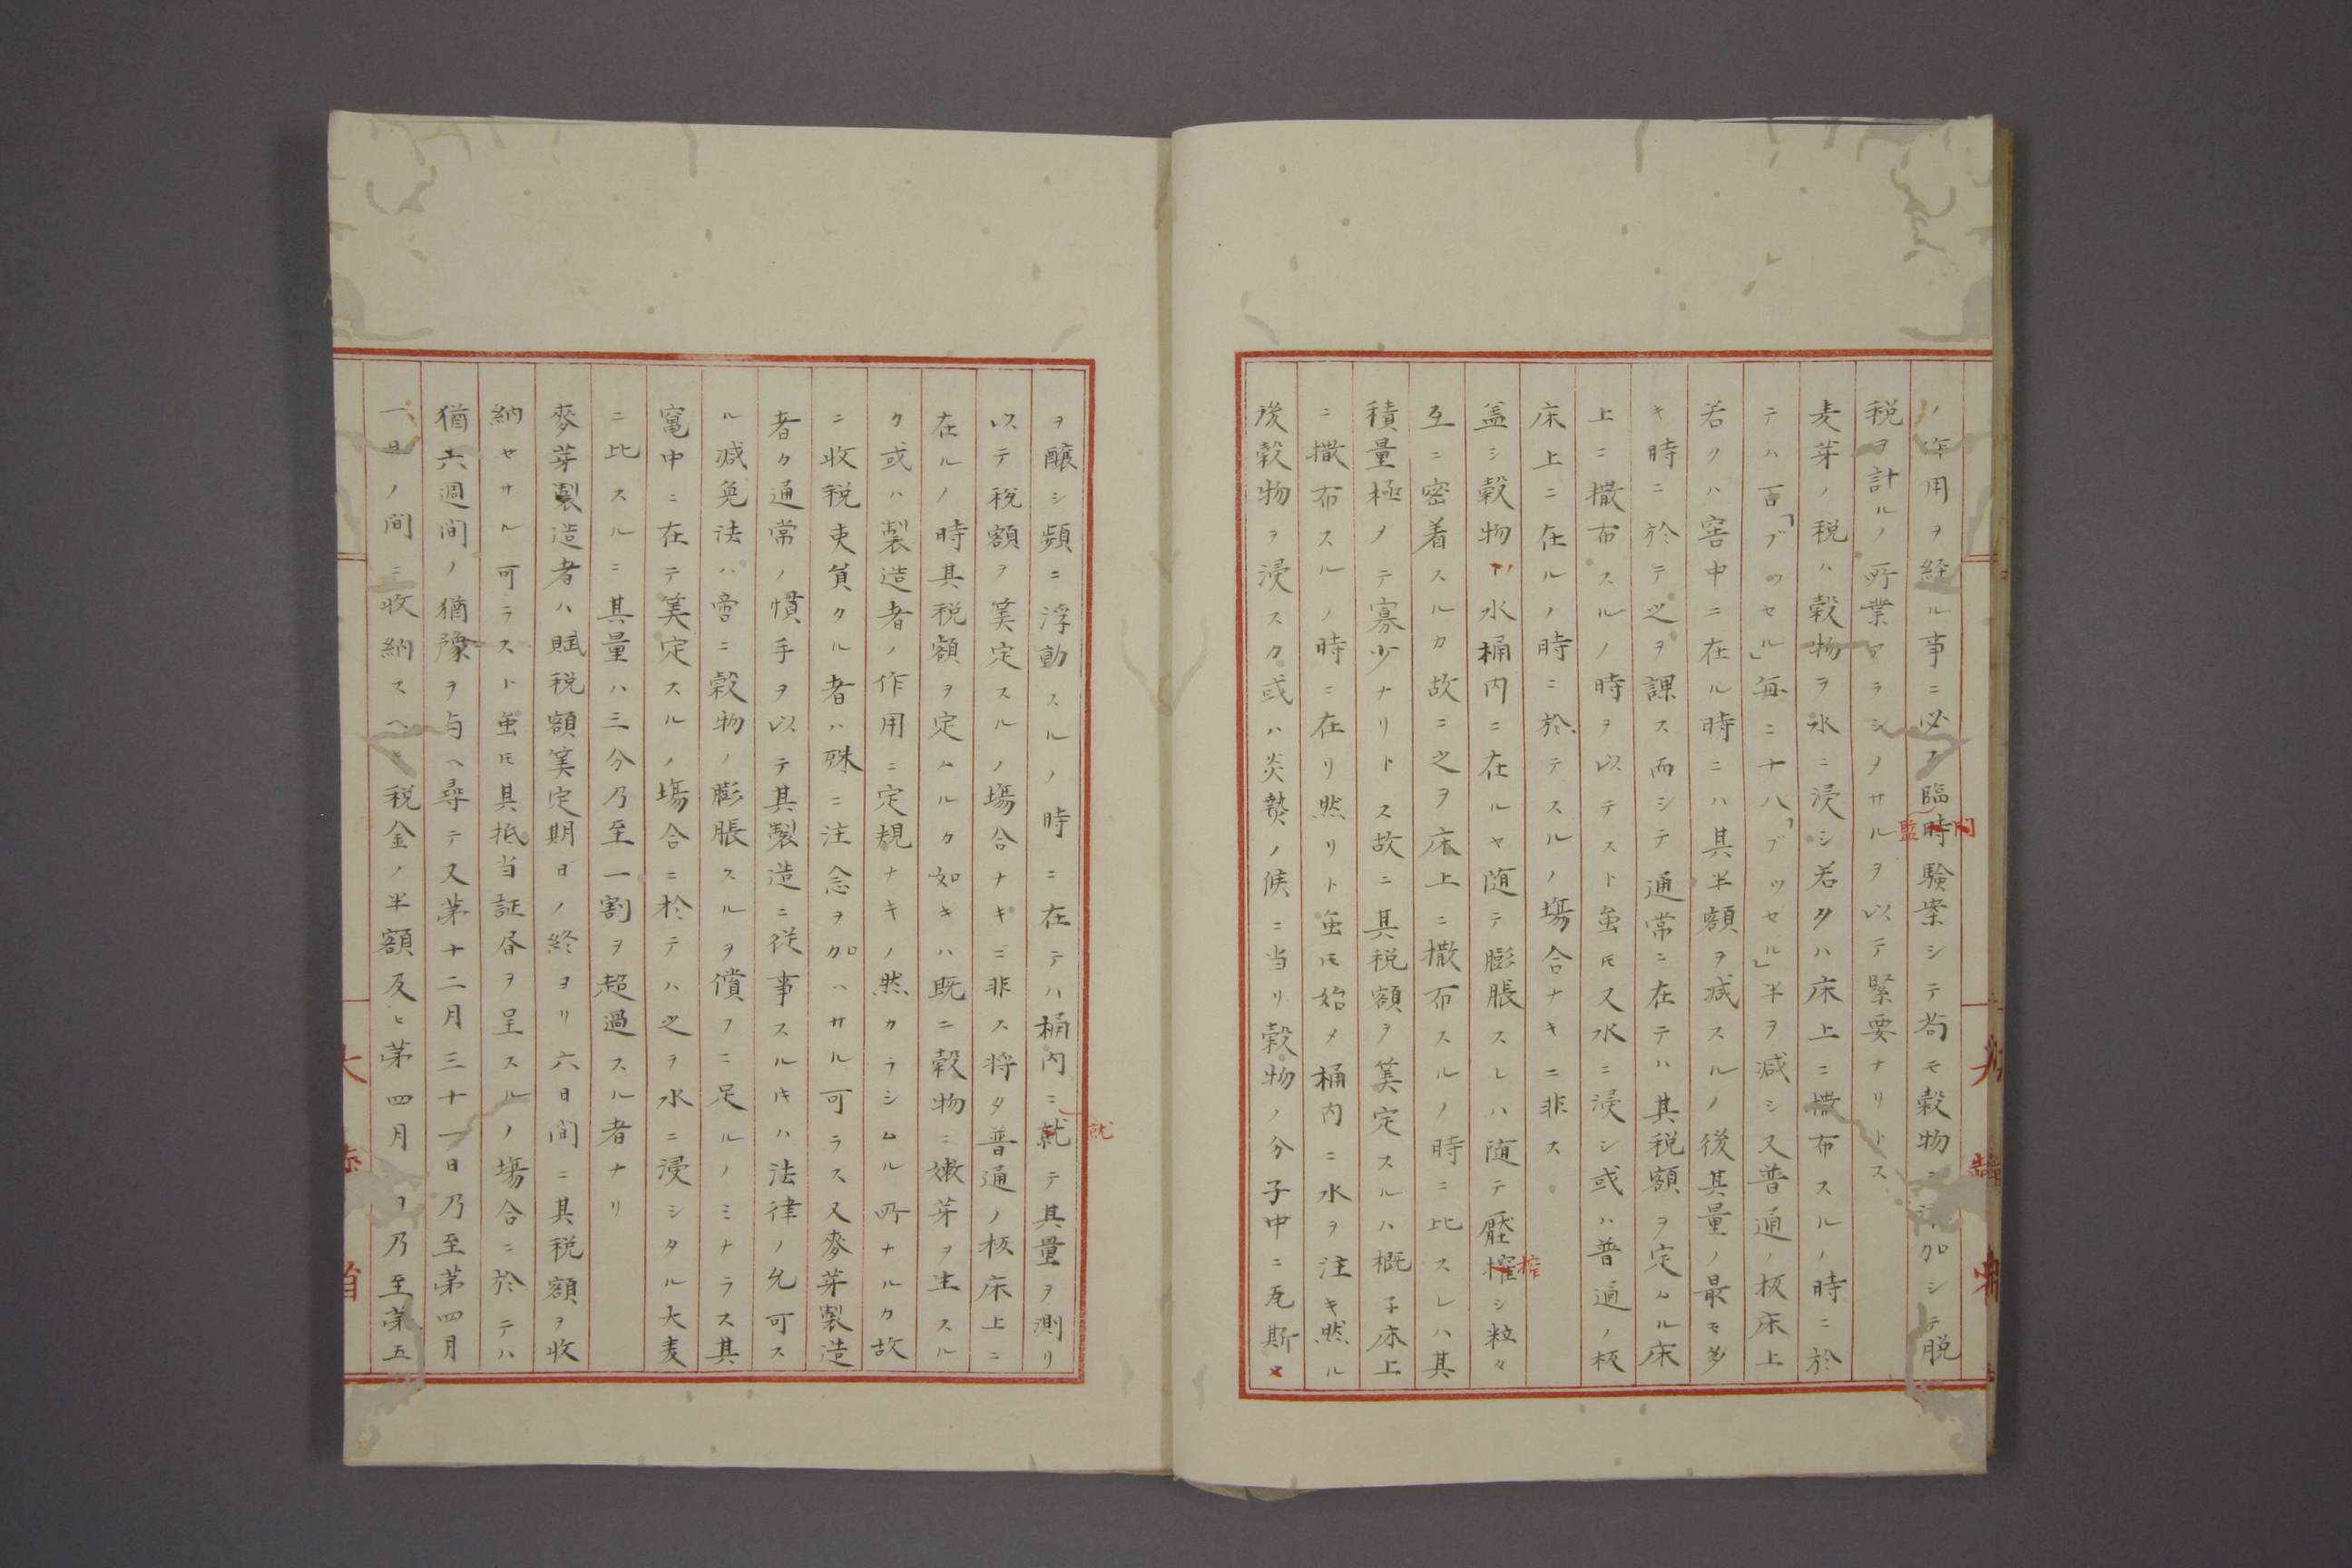 ノ作用ヲ経ル事ニ必ス臨時験案シテ苟モ穀物ニ加シテ脱
税ヲ計ルノ所業アラシヲサルヲ以テ緊要ナリトス
麦芽ノ税ハ穀物ヲ水ニ浸シ若クハ床上ニ撒布スルノ時ニ於
テハ百「ブツセル」毎ニ十八「ブツセル」半ヲ減シ又普通ノ板床上
若クハ窖中ニ在ル時ニハ其半額ヲ減スルノ後其量ノ最モ多
キ時ニ於テ之ヲ課ス而シテ通常ニ在テハ其税額ヲ定ムル床
上ニ撒布スルノ時ヲ以テスト虽𪜈又水ニ浸シ或ハ普通ノ板
床上ニ在ルノ時ニ於テスルノ塲合ナキニ非ス
盖シ穀物水桶内ニ在ルヤ随テ膨脹スレハ随テ壓榨シ粒々
互ニ密着スルカ故ニ之ヲ床上ニ撒布スルノ時ニ比スレハ其
積量極メテ寡少ナリトス故ニ其税額ヲ筭定スルハ概子床上
ニ撒布スルノ時ニ在リ然リト虽𪜈始メ桶内ニ水ヲ注キ然ル
後穀物ヲ浸スカ或ハ炎𤍠ノ候ニ当リ穀物ノ分子中ニ瓦斯
ヲ醸シ頻ニ浮動スルノ時ニ在テハ桶内ニ就テ其量ヲ測リ
以テ税額ヲ筭定スルノ塲合ナキニ非ス将タ普通ノ板床上ニ
在ルノ時其税額ヲ定ムルカ如キハ既ニ穀物ニ嫩芽ヲ生スル
カ或ハ製造者ノ作用ニ定規ナキノ然カラシムル所ナルカ故
ニ收税吏負タル者ハ殊ニ注念ヲ加ハサル可ラス又麥芽製造
者カ通常ノ慣手ヲ以テ其製造ニ従事スル𪜈ハ法律ノ允可ス
ル減免法ハ啻ニ穀物ノ膨脹スルヲ償フニ足ルノミナラス其
竃中ニ在テ筭定スルノ塲合ニ於テハ之ヲ水ニ浸シタル大麦
ニ比スルニ其量ハ三分乃至一割ヲ超過スル者ナリ
麥芽製造者ハ賦税額筭定期日ノ終ヨリ六日間ニ其税額ヲ收
納セサル可ラスト虽𪜈其抵当証書ヲ呈スルノ塲合ニ於テハ
猶六週間ノ猶豫ヲ与ヘ尋テ又苐十二月三十一日乃至苐四月
一日ノ間ニ收納スヘキ税金ノ半額及ヒ苐四月一日乃至苐五
監
榨
就